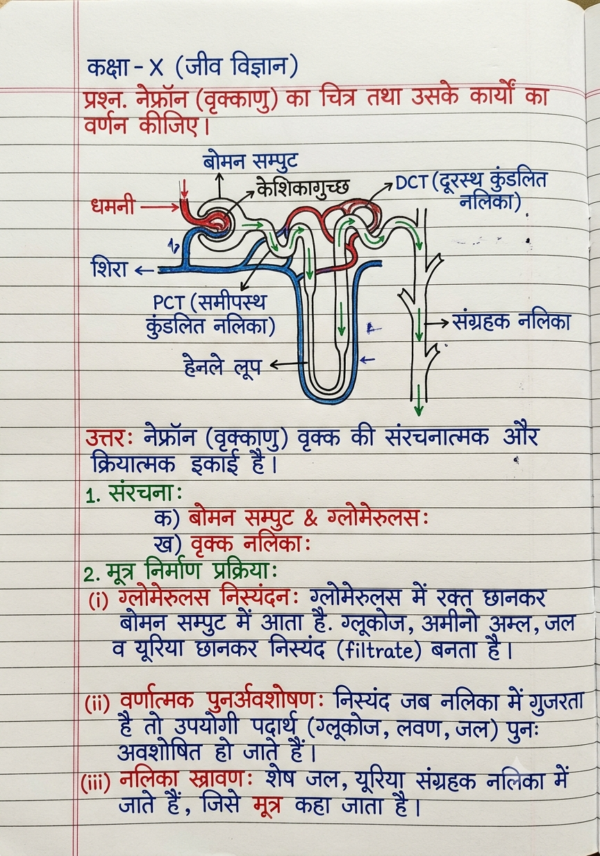 कक्षा - X (जीव विज्ञान)
प्रश्न. नेफ्रॉन (वृक्काणु) का चित्र तथा उसके कार्यों का
वर्णन कीजिए।
बोमन सम्पुट
केशिकागुच्छ
DCT (दूरस्थ कुंडलित
नलिका)
धमनी
शिरा
PCT (समीपस्थ
कुंडलित नलिका)
संग्रहक नलिका
हेनले लूप
उत्तर: नेफ्रॉन (वृक्काणु) वृक्क की संरचनात्मक और
क्रियात्मक इकाई है।
1. संरचना:
क) बोमन सम्पुट & ग्लोमेरुलस:
ख) वृक्क नलिका:
2. मूत्र निर्माण प्रक्रिया:
(i) ग्लोमेरुलस निस्यंदन: ग्लोमेरुलस में रक्त छानकर
बोमन सम्पुट में आता है. ग्लूकोज, अमीनो अम्ल, जल
व यूरिया छानकर निस्यंद (filtrate) बनता है।
(ii) वर्णात्मक पुनर्अवशोषण: निस्यंद जब नलिका में गुजरता
है तो उपयोगी पदार्थ (ग्लूकोज, लवण, जल) पुनः
अवशोषित हो जाते हैं।
(iii) नलिका स्रावण: शेष जल, यूरिया संग्रहक नलिका में
जाते हैं, जिसे मूत्र कहा जाता है।